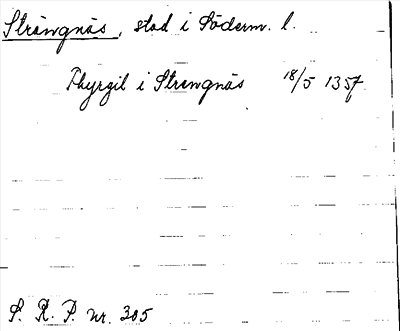 Strängnäs, stad i Söderm. l.
Thyrgil i Strengnäs 18/5 1357.
S. R. P. nr. 305